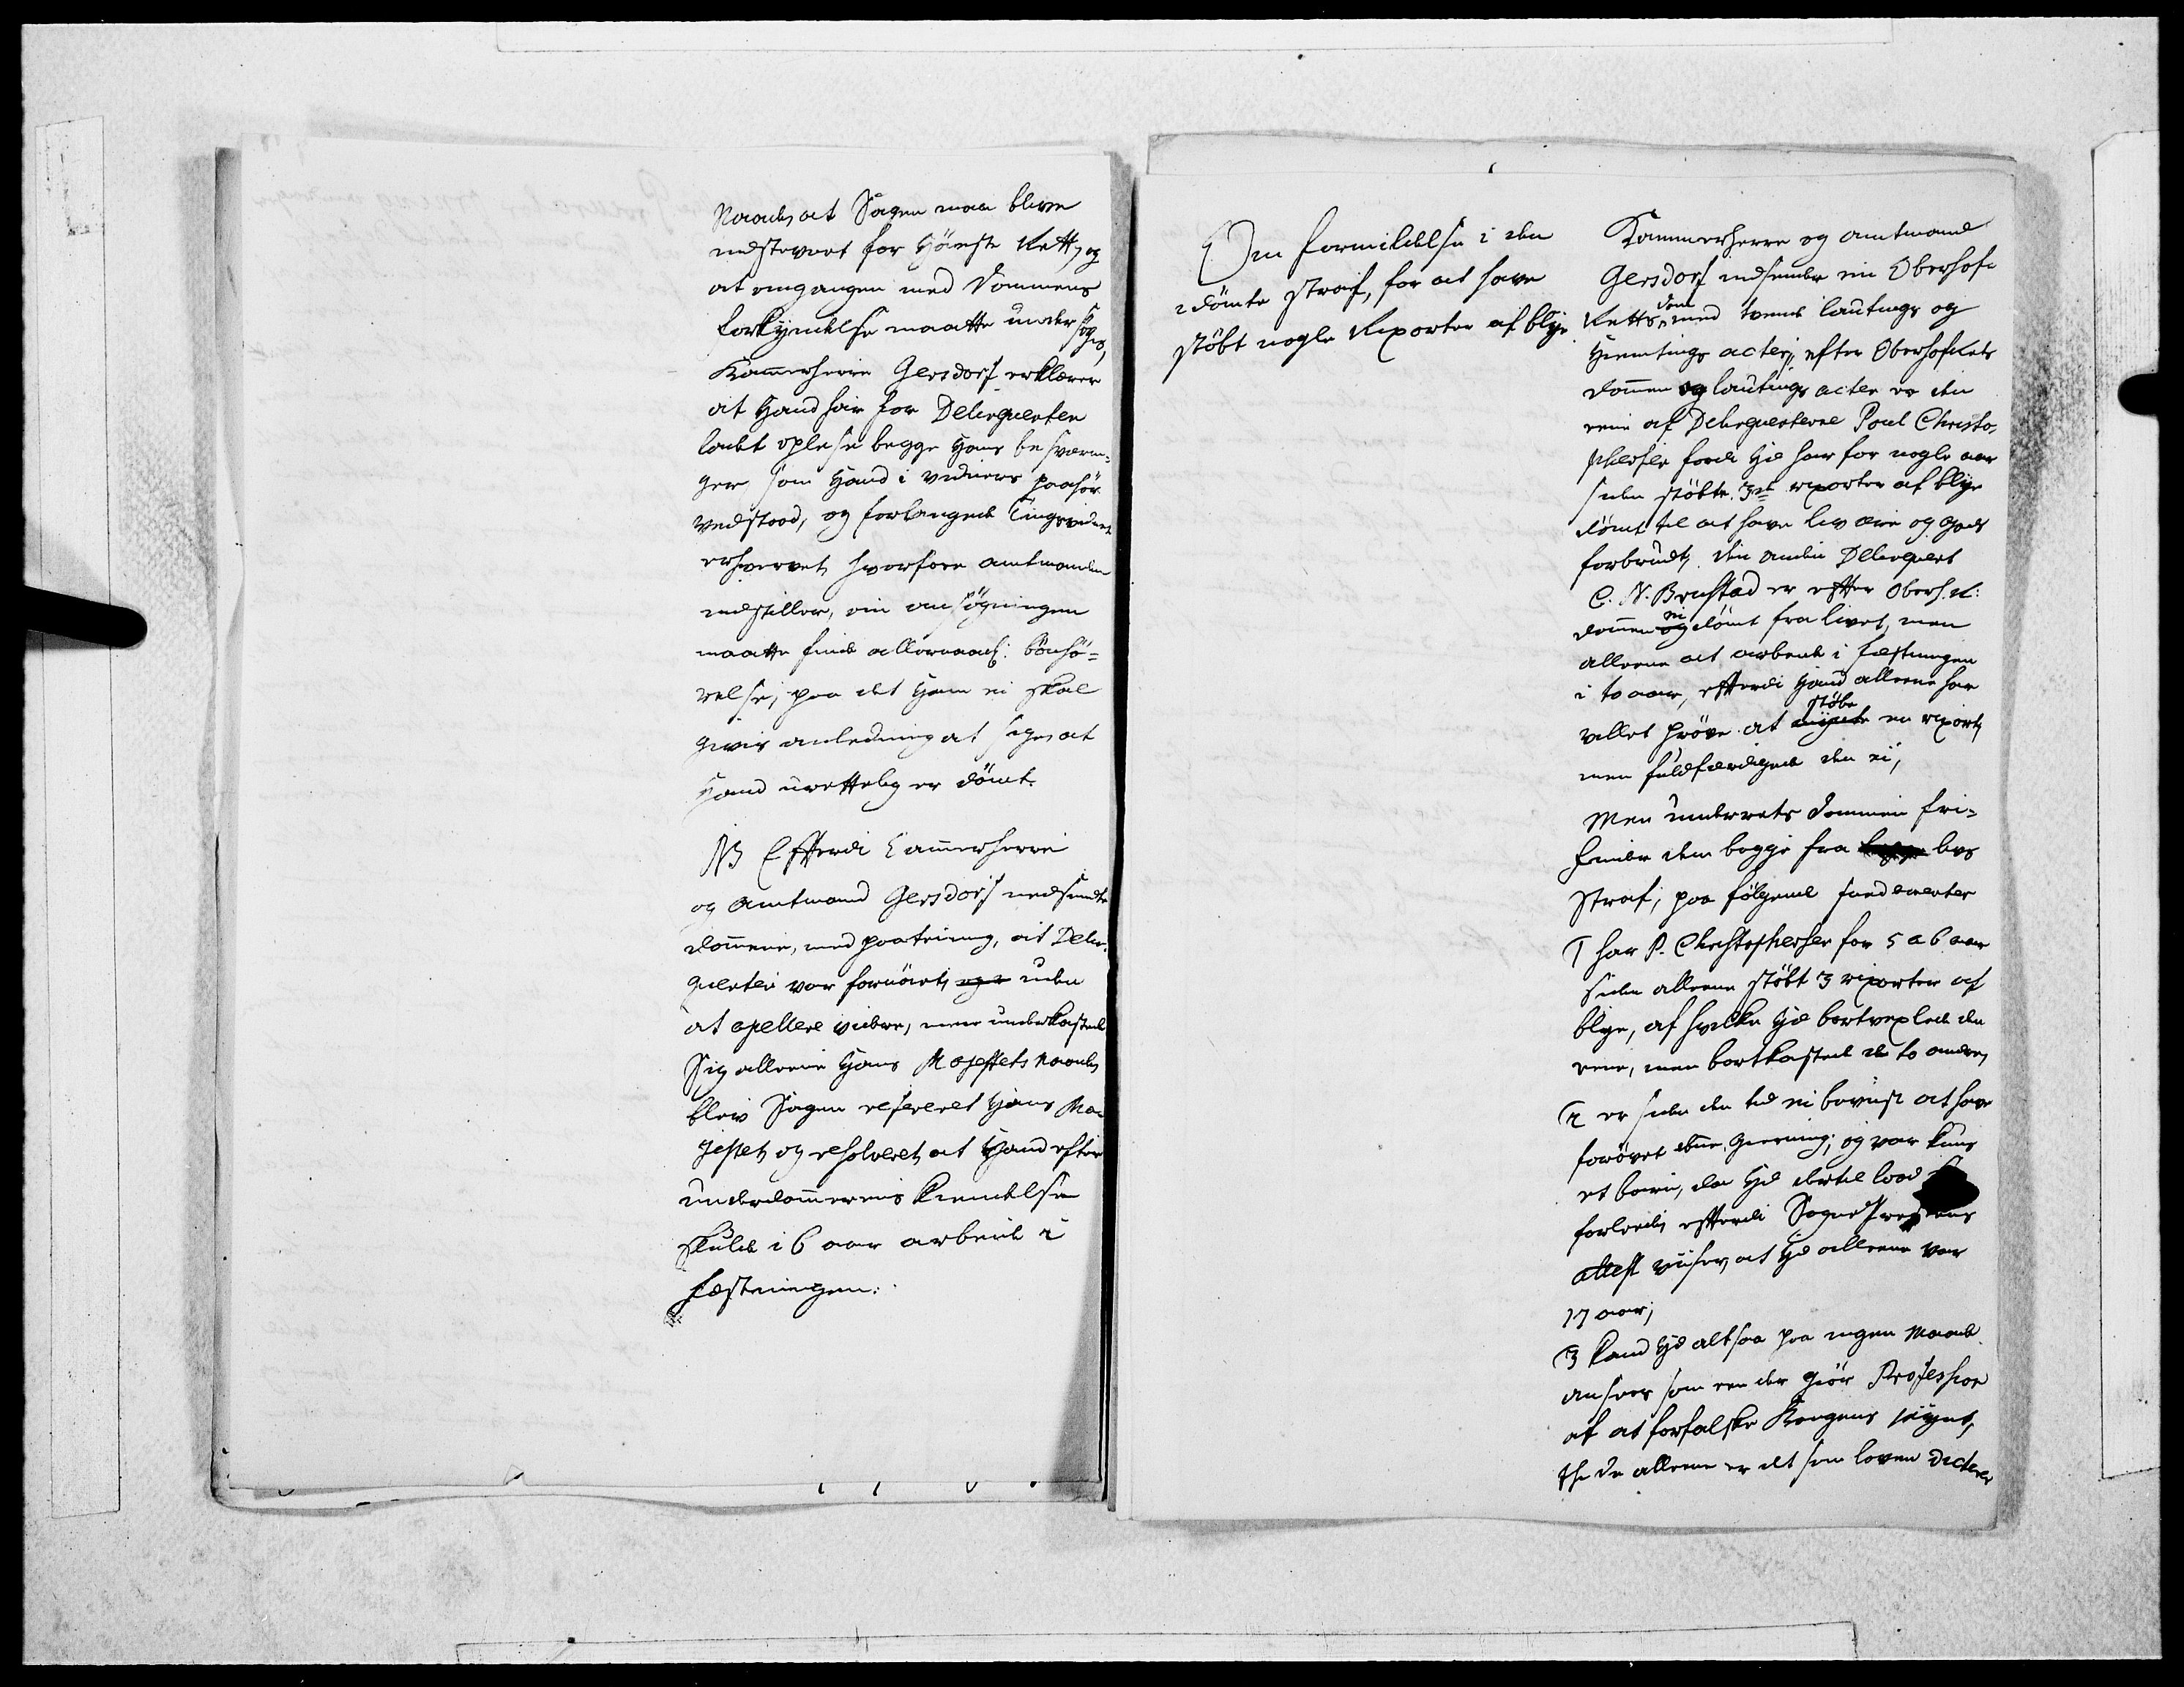 Naade, at Sagen maa blive
indstevnet for Höyeste Rett, og
at omgangen med Dommens
forkyndelse maatte undersøges,
Kammerherre Gersdorf erklærer
at Hand har for Delinquenten
ladet oplese begge Hans besværin-
ger som Hand i vidners paahör
vedstood, og forlangede tingsvidne
erhvervet, hvorfore amtmanden
indstiller, om ansögningen
maatte finde allernaad: bönhö-
relse, paa det Ham ei skal
givis anledning at sige, at
Hand urettelig er dömt.
NB Efterdi Cammerherre
og Amtmand Gersdorf nedsendte
dommene, med paateining, at Delin-
quenten var fornöiet, uden
at apellere videre, men underkastede
sig alleene Hans Majestets Naade,
blev Sagen refereret Hans Ma-
jestet, og resolveret, at Hand efter
underdommerens kiendelse
skulde i 6 aar arbeide i
festningen.
Om formildelse i den
idömte straf, for at have
støbt nogle Rixorter af blye
Kammerherre og amtmand
Gersdorf indsender en Oberhof-
Retts dom med tvende lautings og
Hiemtings acter, efter Oberhofrets
dommen og lautings acten er den
eene af Delinquenterne Poul Christo-
phersen fordi Hd har for nogle aar
siden støbte 3de rixorter af blye
dömt til at have liv ære og gods
forbrudt, den anden Delinquent
C. N. Brustad er efter Oberh. R:
dommen ei dömt fra livet, men
alleene at arbeide i festningen
i to aar, efterdi Hand alleene har
villet pröve at støbe en rixort,
men fuldfærdigede den ei,
Men underrets dommen fri-
finder dem begge fra livs
straf, paa fölgende fundamenter
1 har P. Christophersen for 5 a 6 aar
siden alleene støbt 3 rixorter af
blye, af hvilke Hd bortvexlede den
eene, men bortkastede de to andre,
2 er siden den tid ei beviist at have
forövet  gierning, og var kuns
et barn, da Hd dertil lood
forlede, efterdi Sognepræstens
attest viiser, at Hd alleene var
17 aar,
3 kand Hd altsaa paa ingen Maade
ansees som een der giör Profession
af at forfalske Kongens Mynt,
thi da alleene er det som loven dicterer